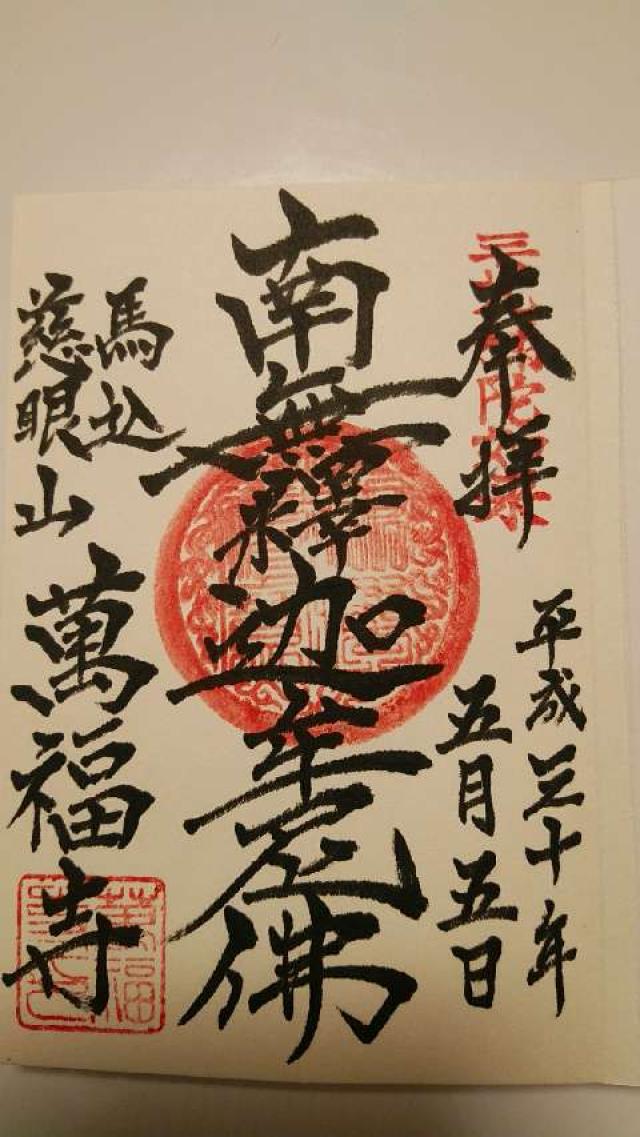 奉拝
平成三十年
五月五日
南無釋迦牟尼佛
馬込
慈眼山
萬福寺